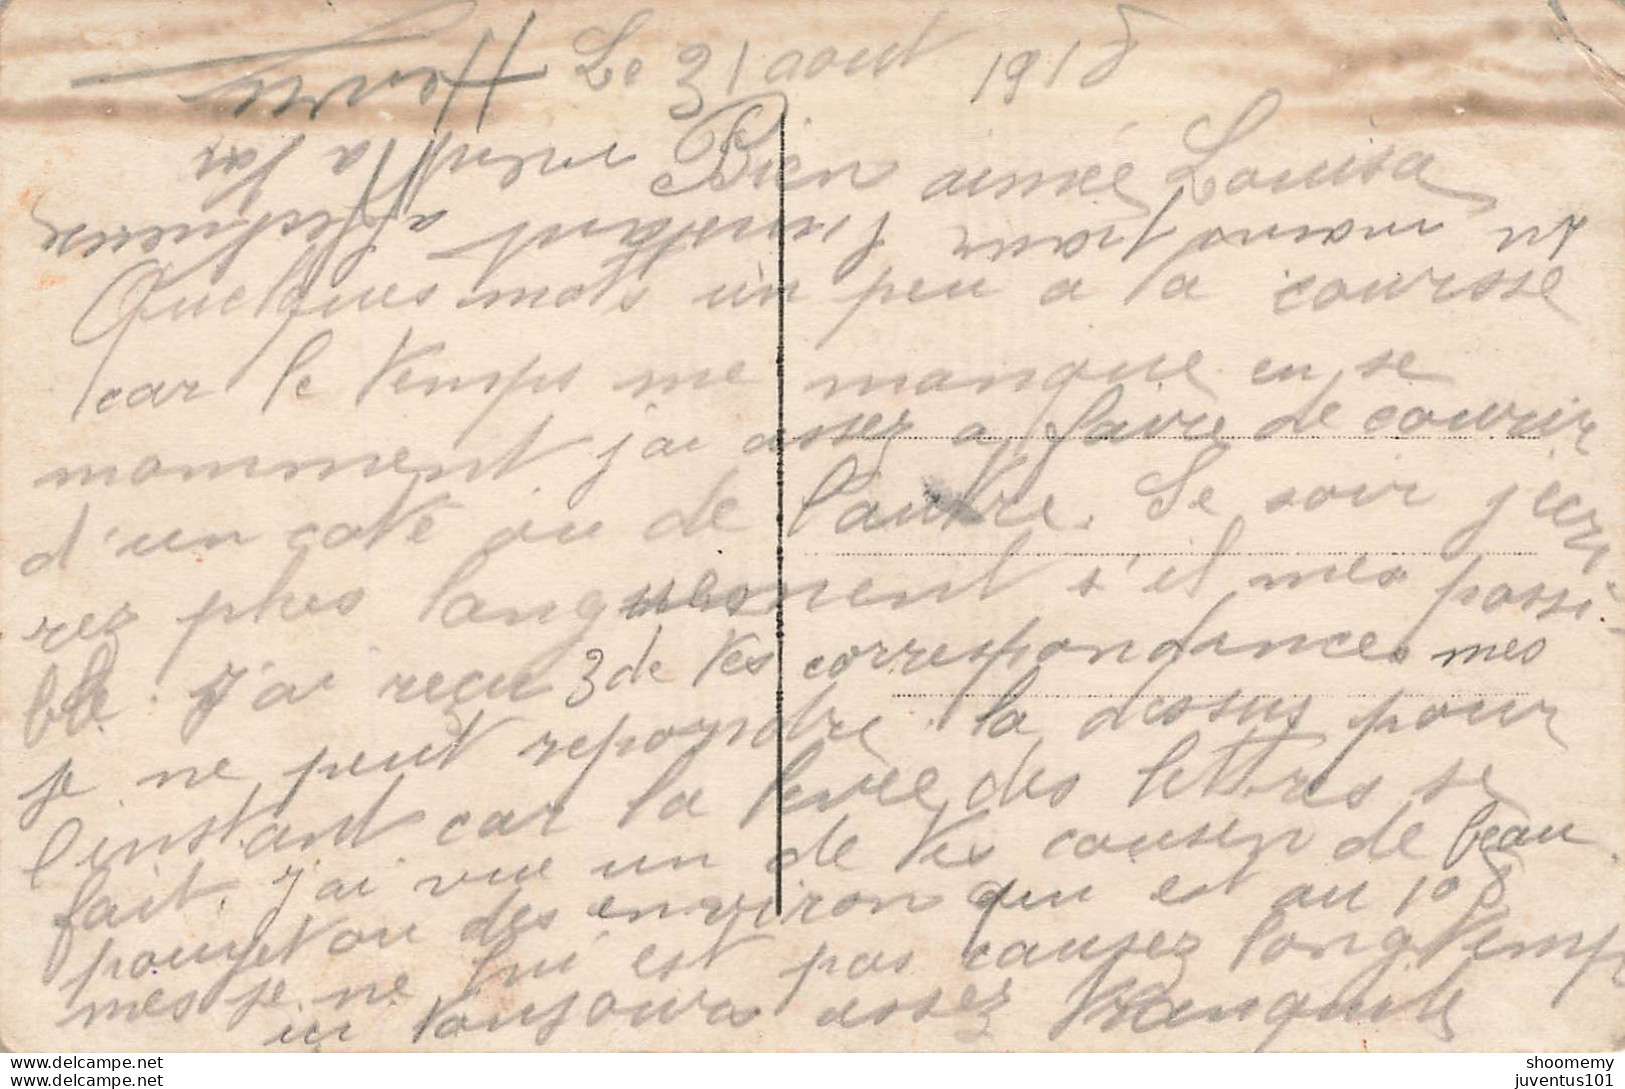 Le 31 aout 1915
Bien aimée Louisa
Quelques mots un peu a la coursse
car le temps me manque en se
momment j'ai assez a faire de courrir
d'un coté ou de l'autre. Se soir j'ecri
rez plus longuement s'il mes possi-
ble. J'ai reçu 3 de tes correspondances mes
je ne peut repondre la dessus pour
l'instant car la levée des lettres se
fait. J'ai vue un de tes cousen de beau
pouyet ou des environ qui est au 108
mes je ne lui est pas causez longtemp
ici toujours assez tranquile
en moins pour l'instant affectueuse
a
Henri
shoomemy
juventus101